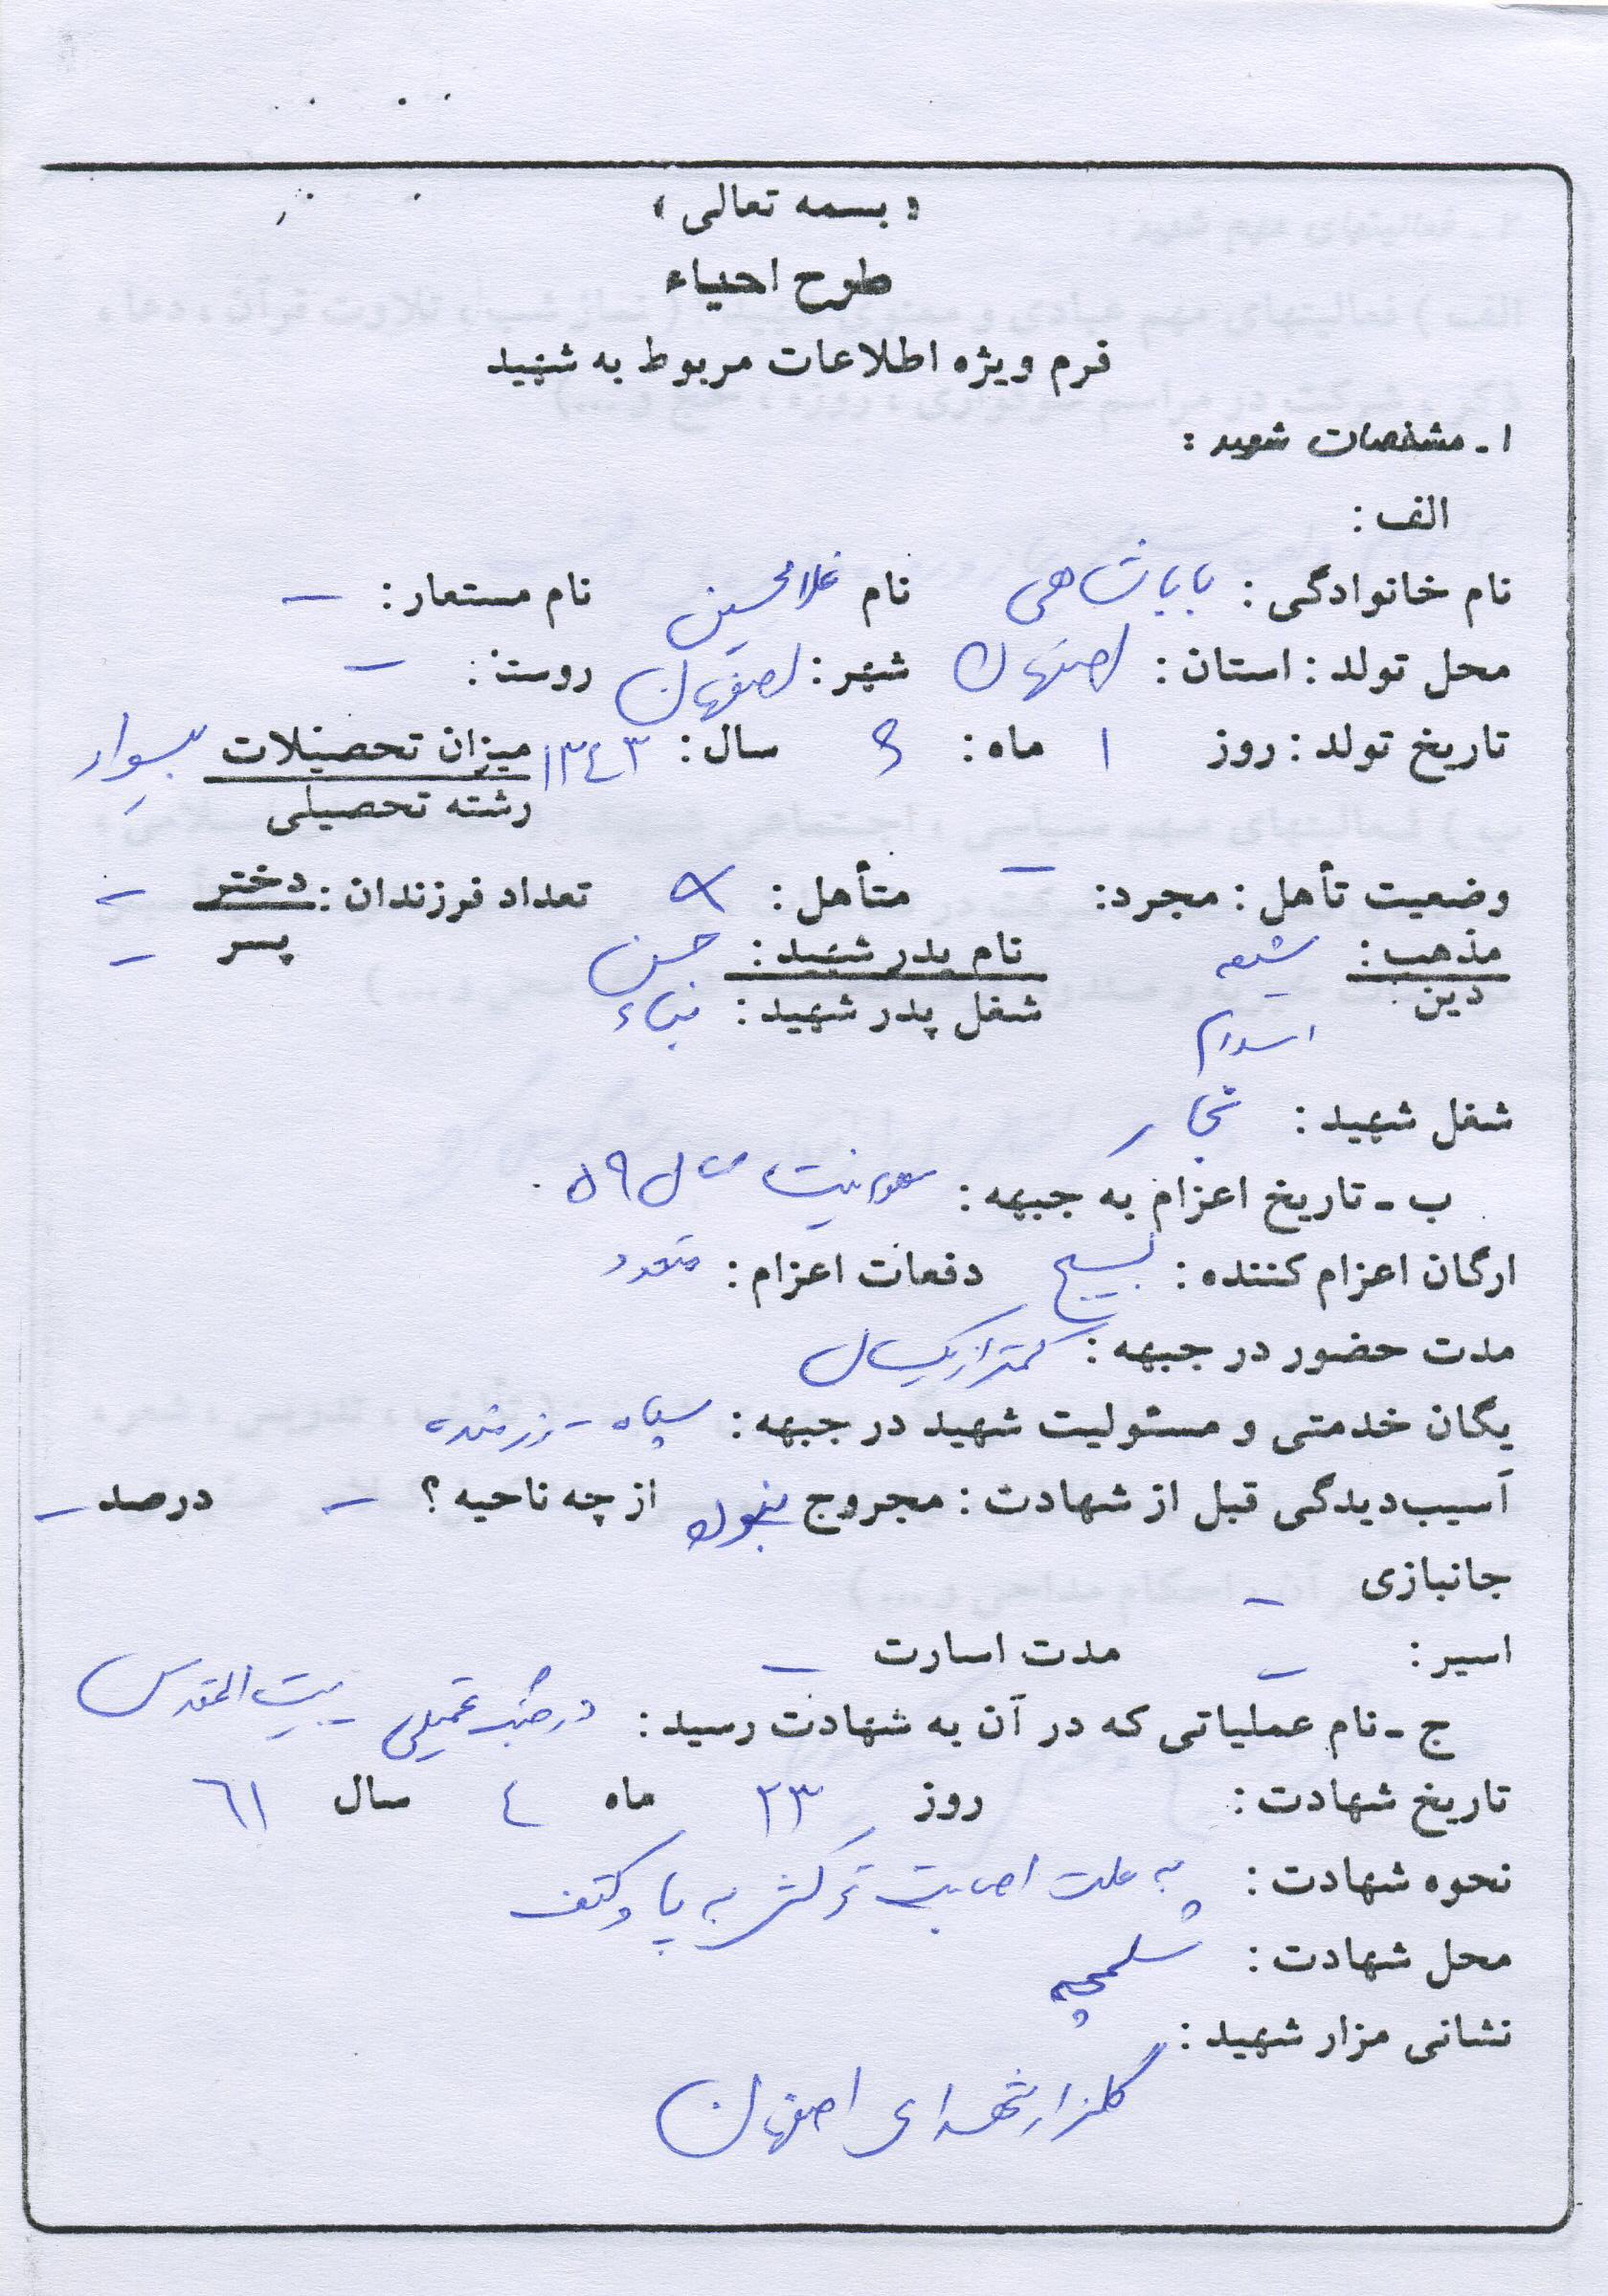 « بسمه تعالی »
طرح احیاء
فرم ویژه اطلاعات مربوط به شهید
۱ ـ مشخصات شهید :
الف :
نام خانوادگی : باباشاهی نام غلامحسین نام مستعار : –
محل تولد : استان : اصفهان شهر : اصفهان روستا : –
تاریخ تولد : روز ۱ ماه : ۶ سال : ۱۳۴۳ میزان تحصیلات بیسواد
رشته تحصیلی
وضعیت تأهل : مجرد : – متأهل : تعداد فرزندان : دختر –
پسر –
مذهب : شیعه نام پدر شهید : حسن
دین : اسلام شغل پدر شهید : بناء
شغل شهید : نجار
ب ـ تاریخ اعزام به جبهه : سال ۵۹
ارگان اعزام کننده : بسیج دفعات اعزام : متعدد
مدت حضور در جبهه : کمتر از یکسال
یگان خدمتی و مسئولیت شهید در جبهه : سپاه – رزمنده
آسیب‌دیدگی قبل از شهادت : مجروح نبود از چه ناحیه ؟ – درصد –
جانبازی –
اسیر : – مدت اسارت –
ج ـ نام عملیاتی که در آن به شهادت رسید : در جنگ تحمیلی بیت المقدس
تاریخ شهادت : روز ۲۳ ماه ٤ سال ٦١
نحوه شهادت : به علت اصابت ترکش به پا و کتف
محل شهادت : شلمچه
نشانی مزار شهید :
گلزار شهدای اصفهان